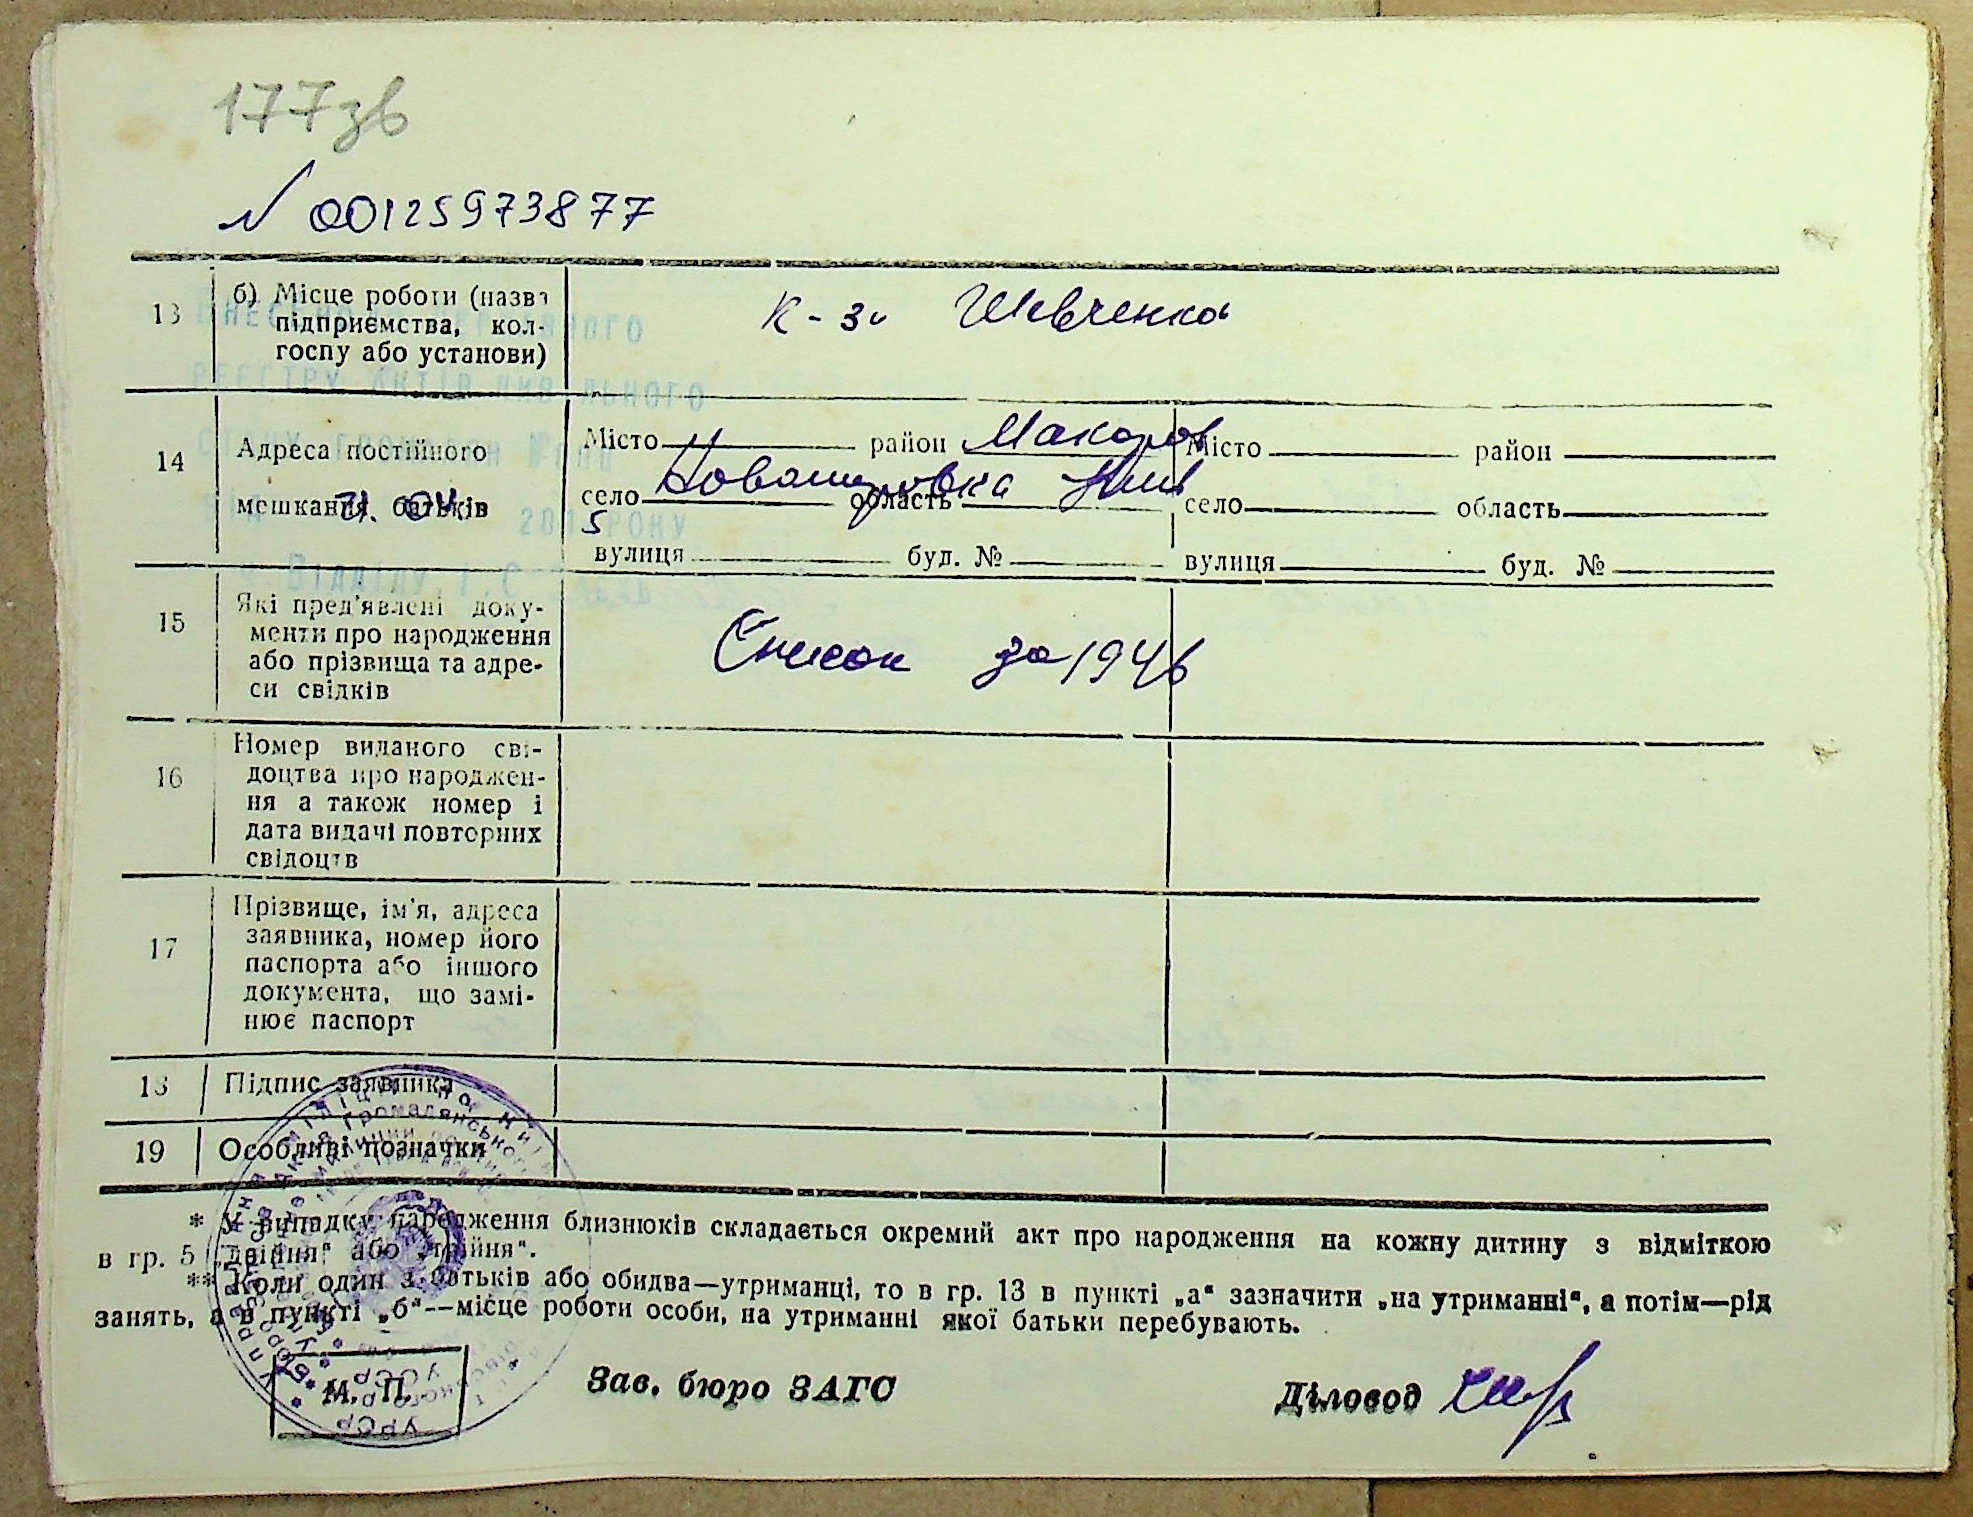 177зв
N 00125973877
13 б) Місце роботи (назва
підприємства, кол-
госпу або установи)
К-з Шевченка
14 Адреса постійного
мешкання батьків
Місто район Макаров
село область
вулиця буд. №
Місто район
село область
вулиця буд. №
15 Які пред'явлені доку-
менти про народження
або прізвища та адре-
си свідків
Список за 1946
16 Номер виданого сві-
доцтва про народжен-
ня а також номер і
дата видачі повторних
свідоцтв
17 Прізвище, ім'я, адреса
заявника, номер його
паспорта або іншого
документа, що замі-
нює паспорт
18 Підпис заявника
19 Особливі позначки
* У випадку народження близнюків складається окремий акт про народження на кожну дитину з відміткою
в гр. 5 „двійня“ або „трійня“.
** Коли один з батьків або обидва—утриманці, то в гр. 13 в пункті „а“ зазначити „на утриманні“, а потім—рід
занять, а в пункті „б“—місце роботи особи, на утриманні якої батьки перебувають.
М. П. Зав. бюро ЗАГС Діловод